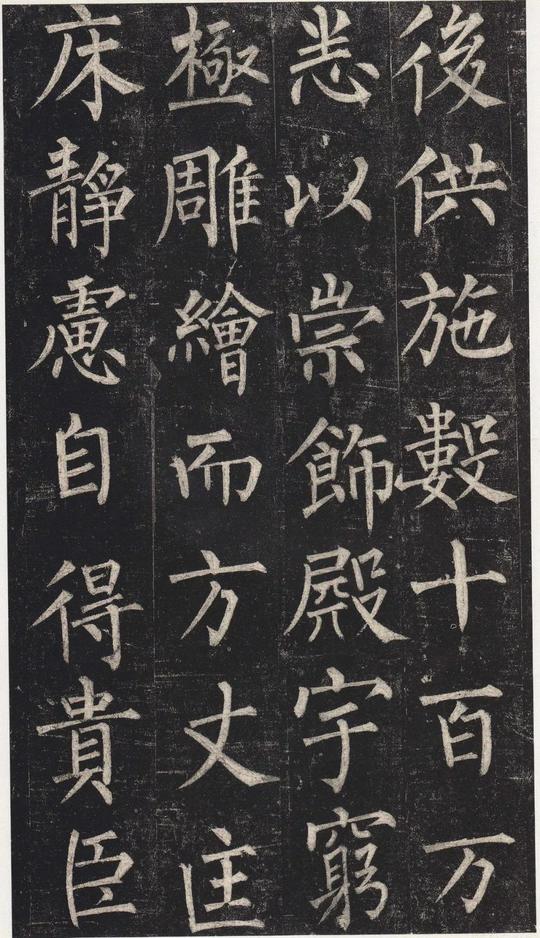 後供施數十百万
悉以崇飾殿宇窮
極雕繪而方丈匡
床靜慮自得貴臣